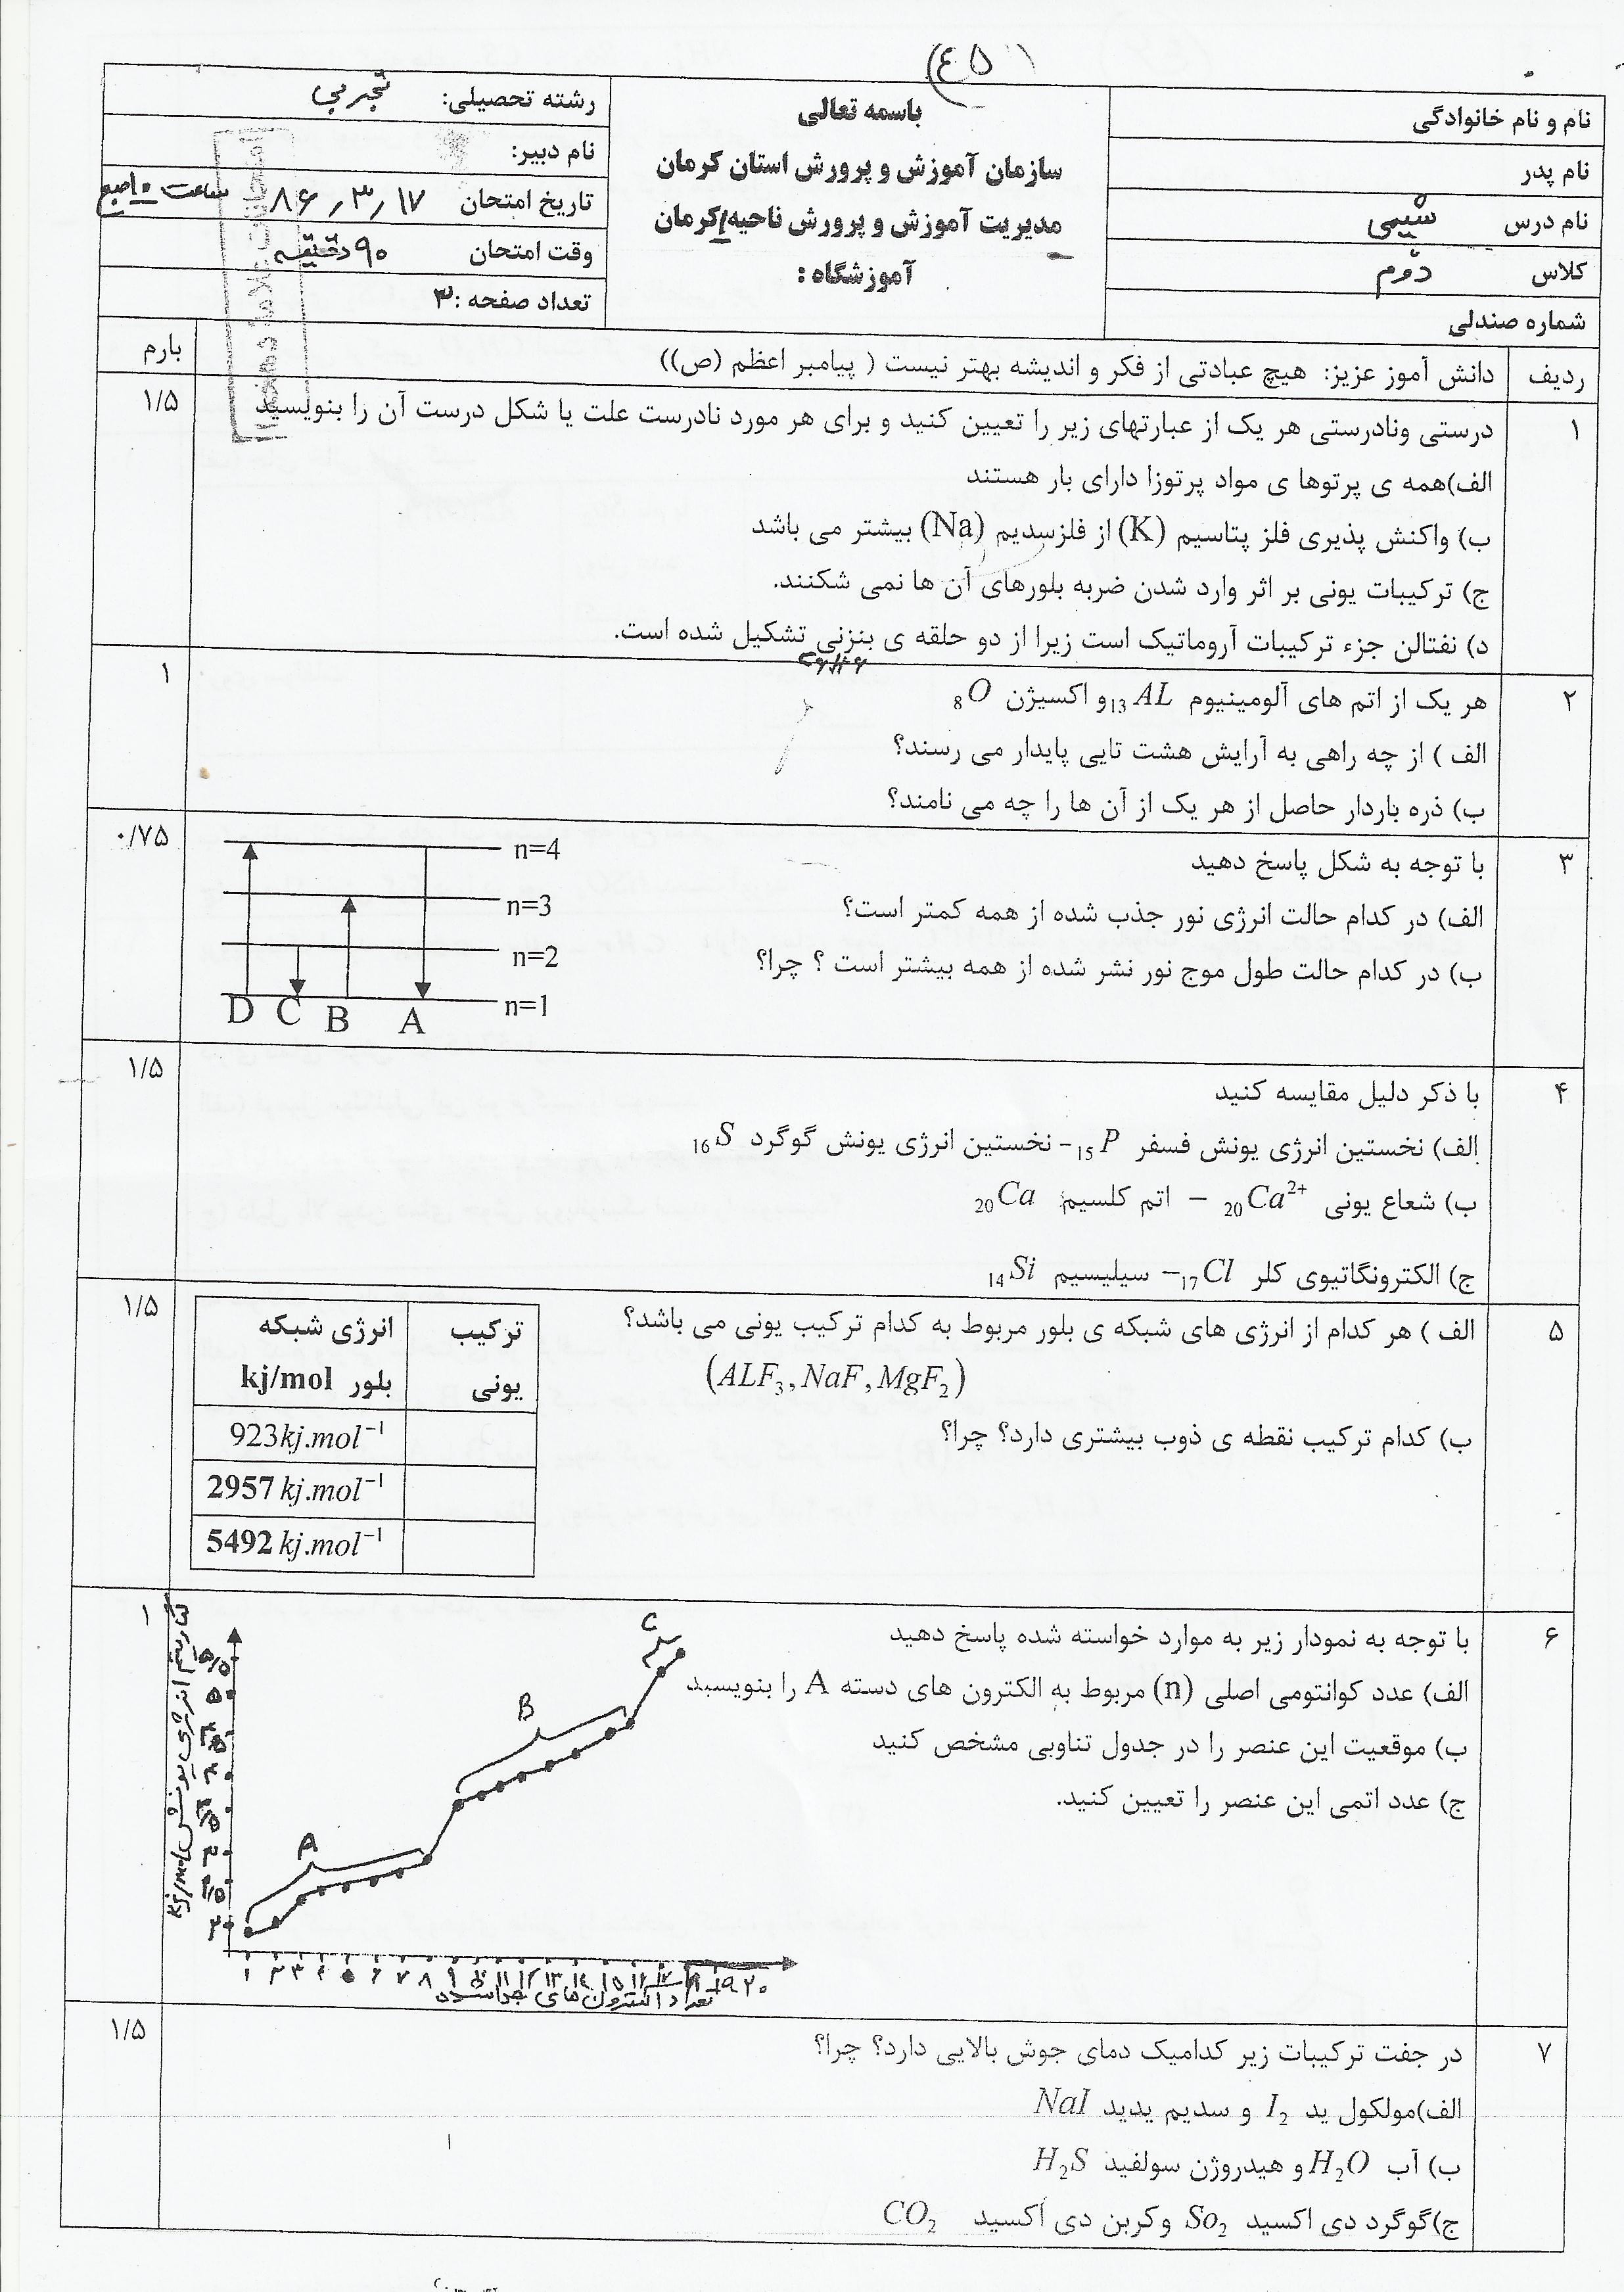 (٤٥)
باسمه تعالی
سازمان آموزش و پرورش استان کرمان
مدیریت آموزش و پرورش ناحیه ۱ کرمان
آموزشگاه :
نام و نام خانوادگی
نام پدر
نام درس شیمی
کلاس دوّم
شماره صندلی
رشته تحصیلی: تجربی
نام دبیر:
تاریخ امتحان ۸۶٫۳٫۱۷ ساعت ۱۰ صبح
وقت امتحان ۹۰ دقیقه
تعداد صفحه :۳
ردیف دانش آموز عزیز: هیچ عبادتی از فکر و اندیشه بهتر نیست ( پیامبر اعظم (ص)) بارم
۱ درستی ونادرستی هر یک از عبارتهای زیر را تعیین کنید و برای هر مورد نادرست علت یا شکل درست آن را بنویسید ۱/۵
الف)همه ی پرتوها ی مواد پرتوزا دارای بار هستند
ب) واکنش پذیری فلز پتاسیم (K) از فلزسدیم (Na) بیشتر می باشد
ج) ترکیبات یونی بر اثر وارد شدن ضربه بلورهای آن ها نمی شکنند.
د) نفتالن جزء ترکیبات آروماتیک است زیرا از دو حلقه ی بنزنی تشکیل شده است.
C₆H₆
۲ هر یک از اتم های آلومینیوم ₁₃AL و اکسیژن ₈O ۱
الف ) از چه راهی به آرایش هشت تایی پایدار می رسند؟
ب) ذره باردار حاصل از هر یک از آن ها را چه می نامند؟
۳ با توجه به شکل پاسخ دهید ۰/۷۵
الف) در کدام حالت انرژی نور جذب شده از همه کمتر است؟
ب) در کدام حالت طول موج نور نشر شده از همه بیشتر است ؟ چرا؟
n=4
n=3
n=2
n=1
D C B A
۴ با ذکر دلیل مقایسه کنید ۱/۵
الف) نخستین انرژی یونش فسفر ₁₅P - نخستین انرژی یونش گوگرد ₁₆S
ب) شعاع یونی ₂₀Ca²⁺ – اتم کلسیم ₂₀Ca
ج) الکترونگاتیوی کلر ₁₇Cl – سیلیسیم ₁₄Si
۵ الف ) هر کدام از انرژی های شبکه ی بلور مربوط به کدام ترکیب یونی می باشد؟ ۱/۵
(ALF₃, NaF, MgF₂)
ب) کدام ترکیب نقطه ی ذوب بیشتری دارد؟ چرا؟
ترکیب یونی
انرژی شبکه بلور kj/mol
923kj.mol⁻¹
2957 kj.mol⁻¹
5492 kj.mol⁻¹
۶ با توجه به نمودار زیر به موارد خواسته شده پاسخ دهید ۱
الف) عدد کوانتومی اصلی (n) مربوط به الکترون های دسته A را بنویسید
ب) موقعیت این عنصر را در جدول تناوبی مشخص کنید
ج) عدد اتمی این عنصر را تعیین کنید.
لگاریتم انرژی یونش kj/mol
۵/۵
۵
۴/۵
۴
۳/۵
۳
۲/۵
۲
A
B
C
۱ ۲ ۳ ۴ ۵ ۶ ۷ ۸ ۹ ۱۰ ۱۱ ۱۲ ۱۳ ۱۴ ۱۵ ۱۶ ۱۷ ۱۸ ۱۹ ۲۰
تعداد الکترون های جدا شده
۷ در جفت ترکیبات زیر کدامیک دمای جوش بالایی دارد؟ چرا؟ ۱/۵
الف)مولکول ید I₂ و سدیم یدید NaI
ب) آب H₂O و هیدروژن سولفید H₂S
ج)گوگرد دی اکسید So₂ وکربن دی اکسید CO₂